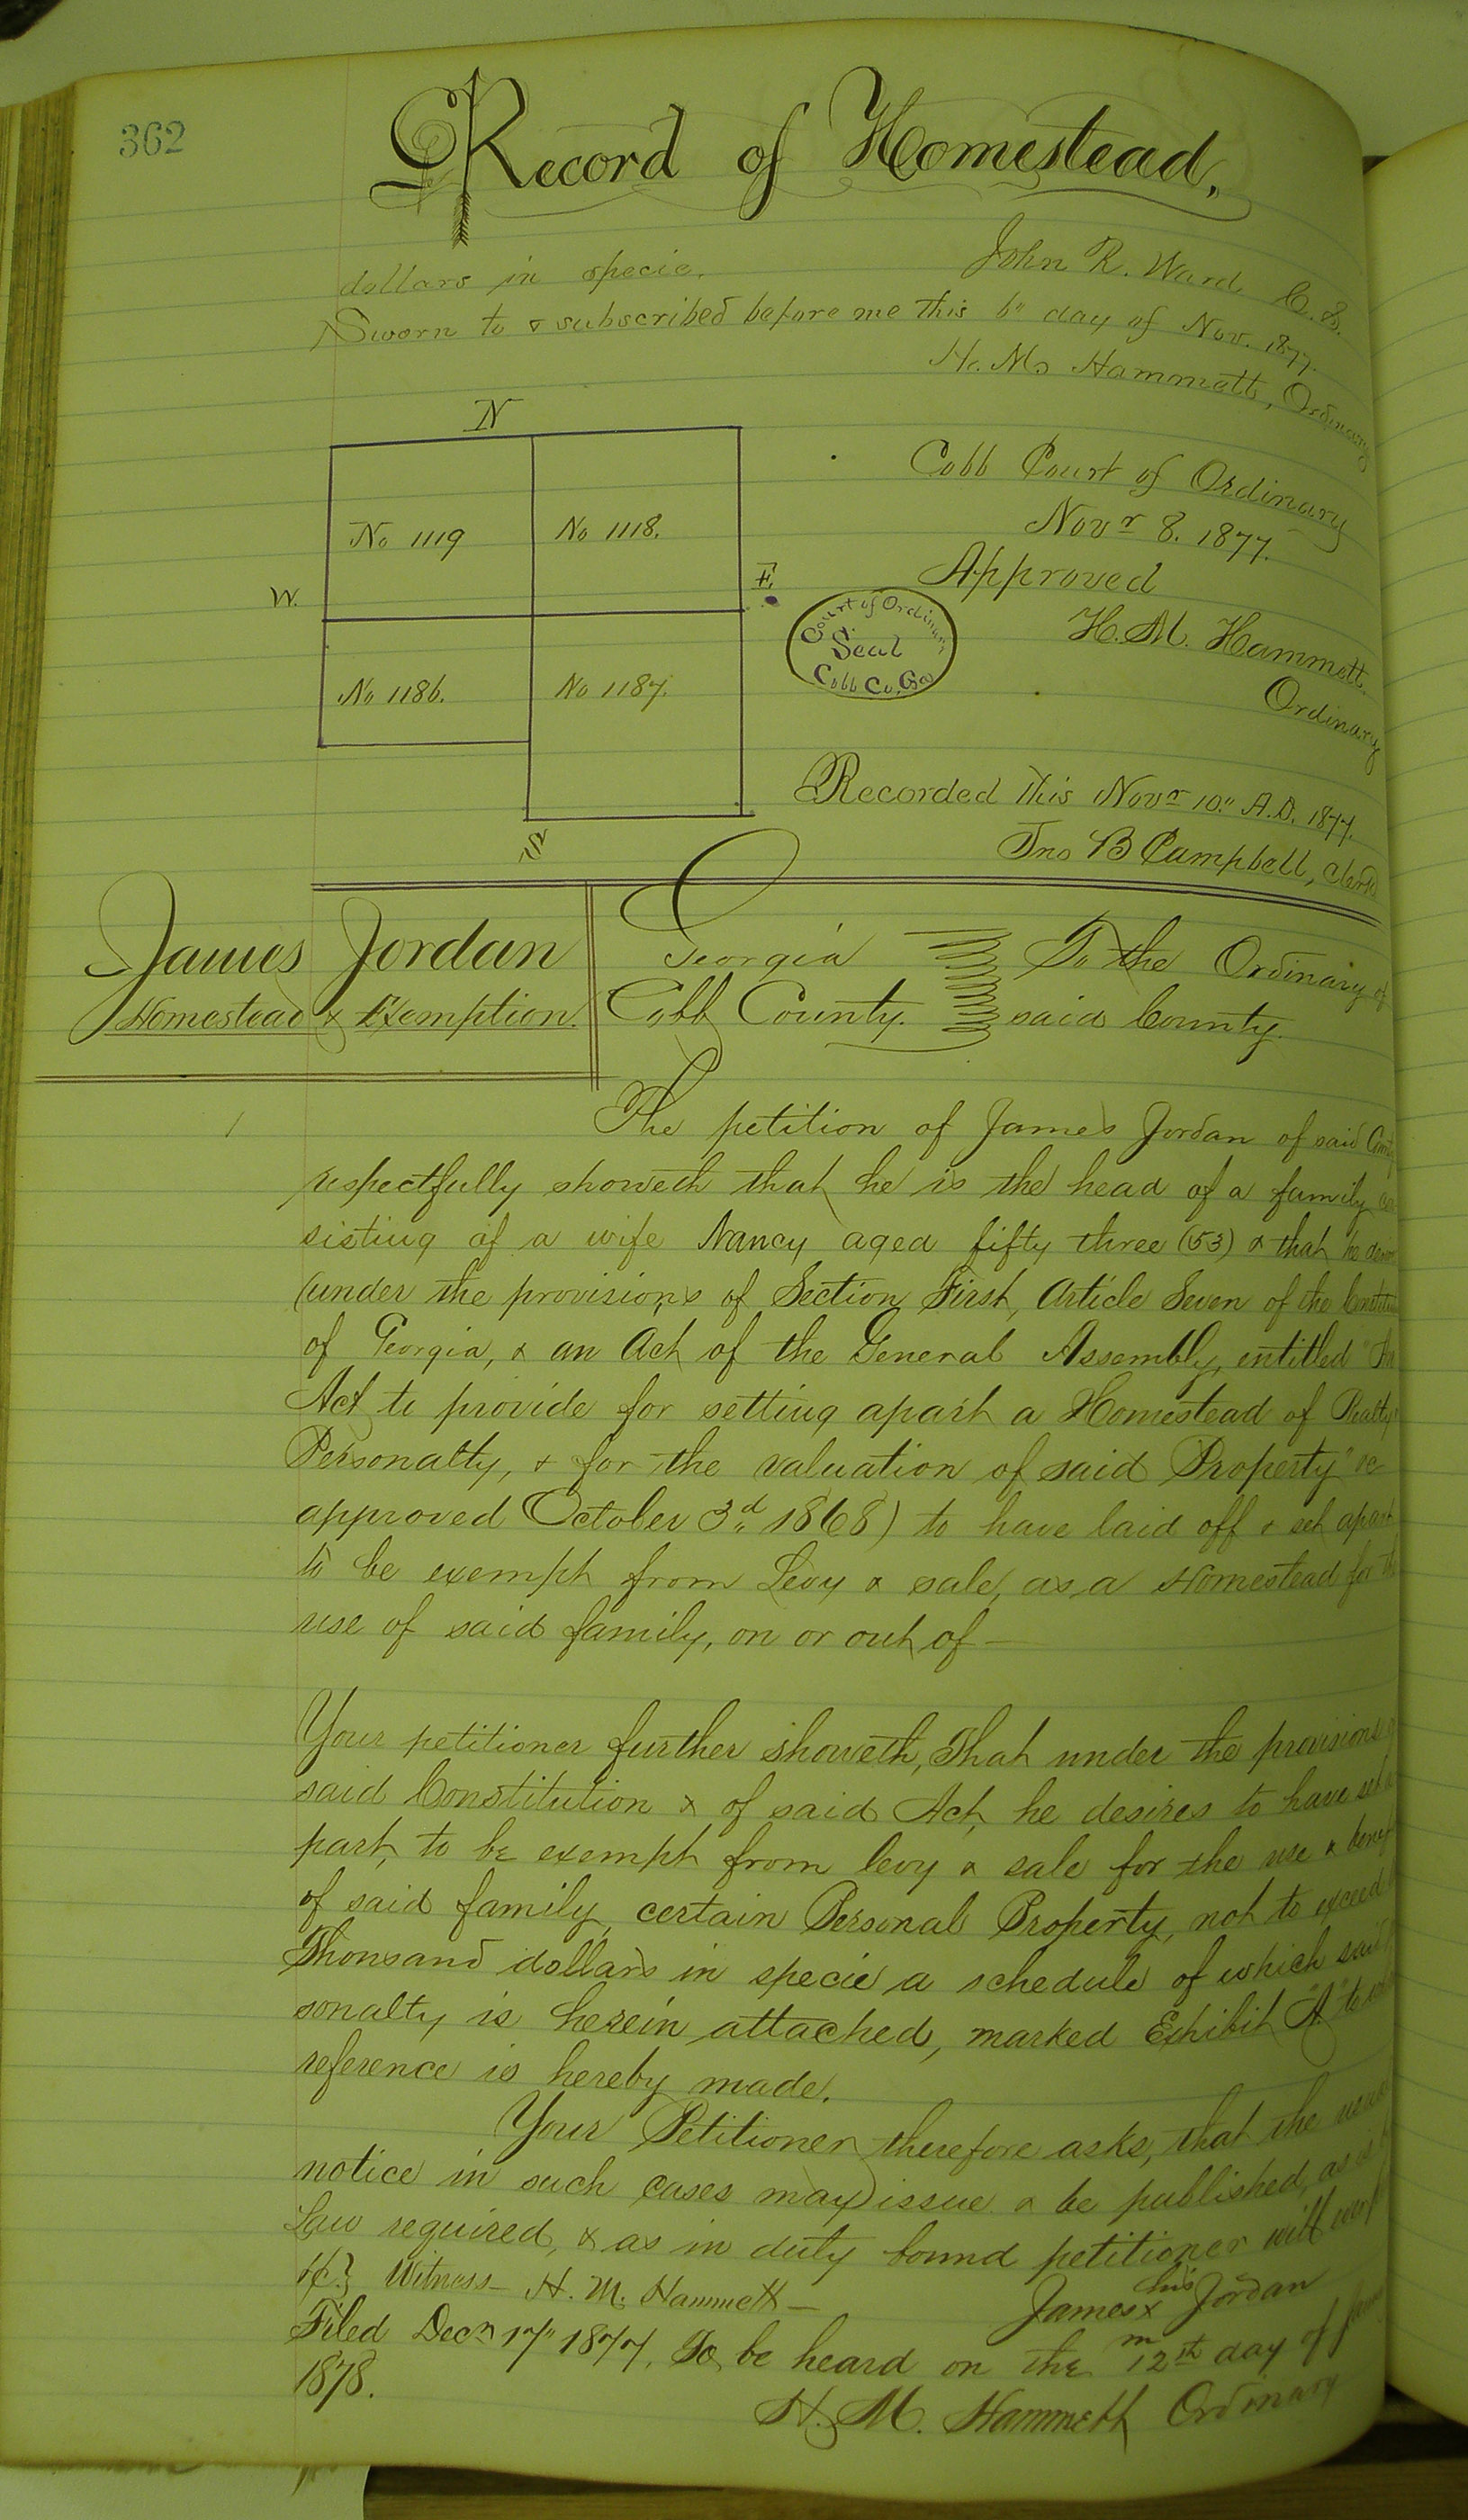 362
Record of Homestead,
dollars in specie. John R. Ward C. S.
Sworn to & subscribed before me this 6" day of Nov. 1877.
H. M. Hammett, Ordinary
N
Cobb Court of Ordinary
Novr 8. 1877.
No 1119 No 1118.
Approved
W. E.
Court of Ordinary
Seal
Cobb Co. Ga
H. M. Hammett
Ordinary
No 1186. No 1187.
Recorded This Novr 10" A.D. 1877.
S
Jno B Campbell, Clerk
James Jordan
Homestead & Exemption.
Georgia To the Ordinary of
Cobb County. said County.
The petition of James Jordan of said County
respectfully showeth that he is the head of a family con
sisting of a wife Nancy aged fifty three (53) & that he desires
(under the provisions of Section First, Article Seven of the Constitution
of Georgia, & an Act of the General Assembly, entitled "An
Act to provide for setting apart a Homestead of Realty &
Personalty, & for the valuation of said Property" &c
approved October 3d 1868) to have laid off & set apart
to be exempt from Levy & sale, as a Homestead for the
use of said family, on or out of —
Your petitioner further showeth, That under the provisions of
said Constitution & of said Act, he desires to have set a
part, to be exempt from levy & sale for the use & benefit
of said family, certain Personal Property, not to exceed
Thousand dollars in specie a schedule of which said
sonalty is herein attached, marked Exhibit "A" to
reference is hereby made.
Your Petitioner therefore asks, that the usual
notice in such cases may issue & be published, as is
Law required, & as in duty bound petitioner will
&c} Witness— H. M. Hammett — James his x Jordan
m
Filed Decr 17" 1877. To be heard on the 12th day of
1878.
H. M. Hammett Ordinary